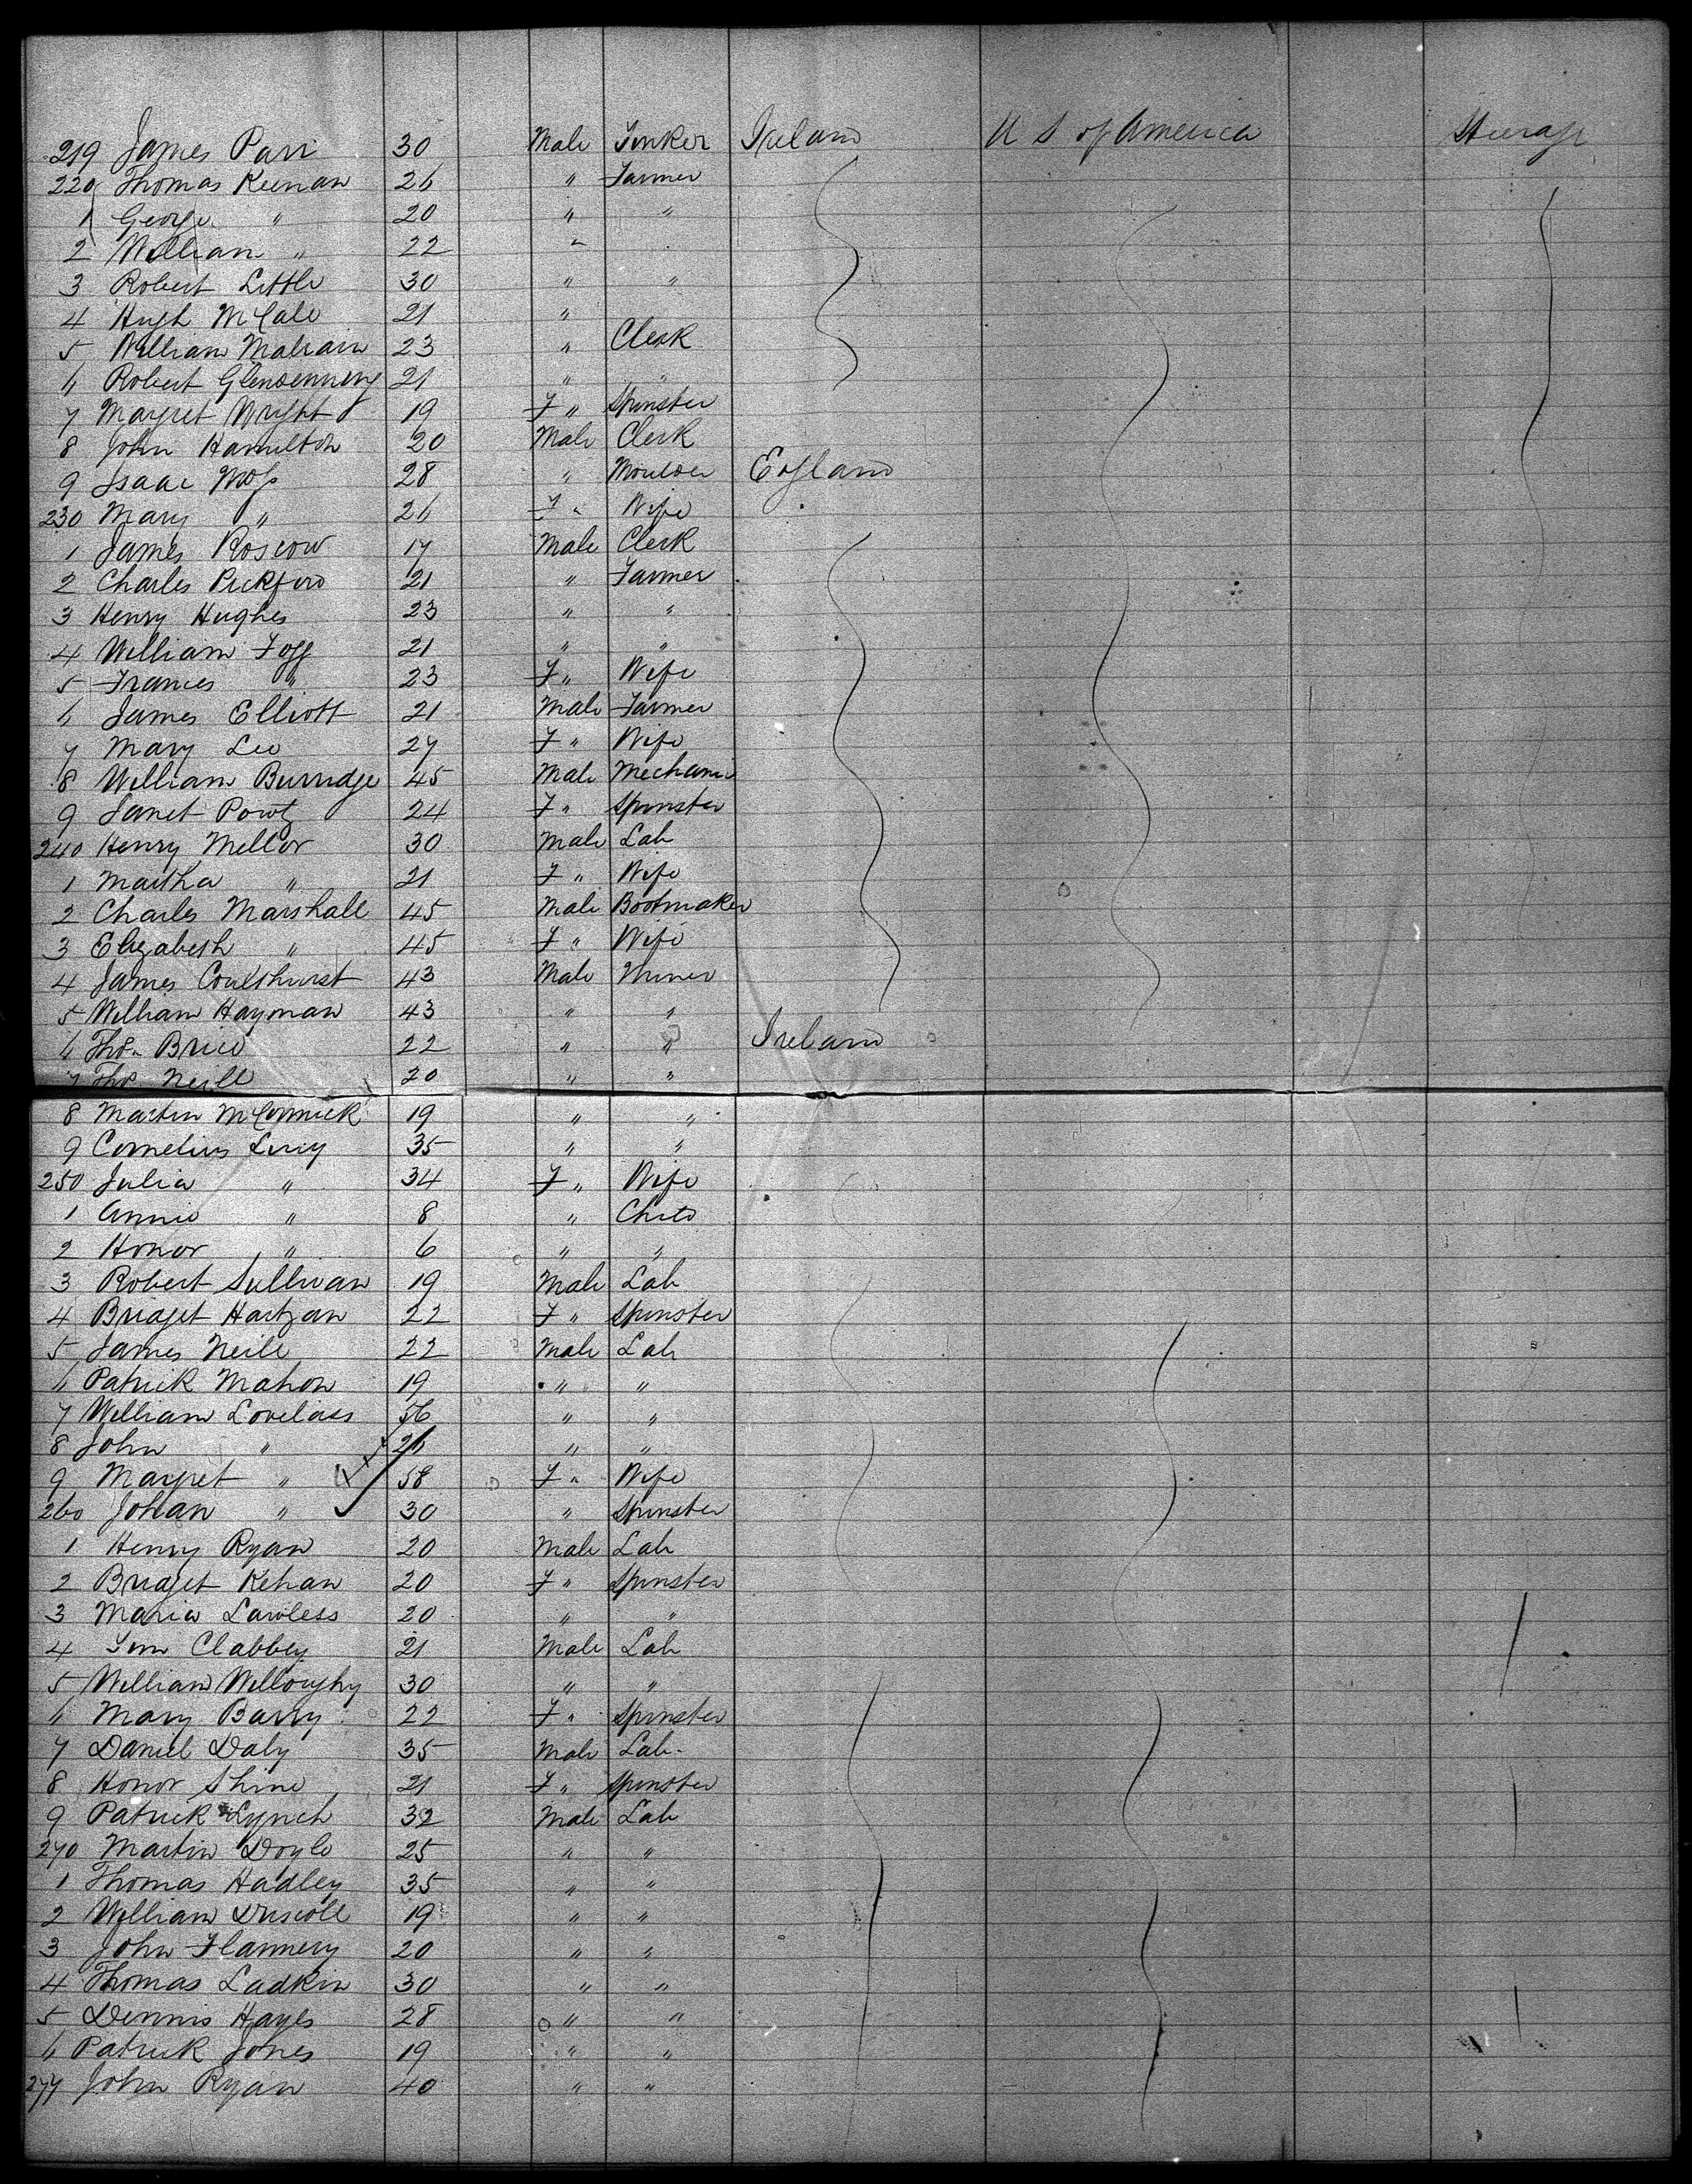 219 James Parr 30 Male Tinker Ireland U S of America Steerage
220 Thomas Keenan 26 " Farmer
1 George " 20 " "
2 William " 22 "
3 Robert Little 30 " "
4 Hugh McCale 21 "
5 William 23 " Clerk
6 Robert Glendenning 21 " "
7 Margret Wright 19 F " Spinster
8 John Hamilton 20 Male Clerk
9 Isaac Moss 28 " Moulder England
230 Mary " 26 F " Wife
1 James Roscow 17 Male Clerk
2 Charles Pickford 21 " Farmer
3 Henry Hughes 23 " "
4 William Fogg 21 " "
5 Frances " 23 F " Wife
6 James Elliott 21 Male Farmer
7 Mary Lee 27 F " Wife
8 William Burridge 45 Male Mechanic
9 Janet 24 F " Spinster
240 Henry Mellor 30 Male Lab
1 Martha " 21 F " Wife
2 Charles Marshall 45 Male Bootmaker
3 Elizabeth " 45 F " Wife
4 James Coulthurst 43 Male Miner
5 William Hayman 43 " "
6 Thos. Brice 22 " " Ireland
7 Thos Neill 20 " "
8 Martin McCormick 19 " "
9 Cornelius Lucy 35 " "
250 Julia " 34 F " Wife
1 Annie " 8 " Child
2 Honor " 6 " "
3 Robert Sullivan 19 Male Lab
4 Bridget Hartgan 22 F " Spinster
5 James Neill 22 Male Lab
6 Patrick Mahon 19 " "
7 William Lovelass 56 " "
8 John " 26 " "
9 Margret " 58 F " Wife
260 Johan " 30 " Spinster
1 Henry Ryan 20 Male Lab
2 Bridget Kehan 20 F " Spinster
3 Maria Lawless 20 " "
4 Tim Clabbey 21 Male Lab
5 William Willoughy 30 " "
6 Mary Barry 22 F " Spinster
7 Daniel Daly 35 Male Lab.
8 Honor Shine 21 F " Spinster
9 Patrick Lynch 32 Male Lab
270 Martin Doyle 25 " "
1 Thomas Hadley 35 " "
2 William Driscoll 19 " "
3 John Flannery 20 " "
4 Thomas Ladkin 30 " "
5 Dennis Hayes 28 " "
6 Patrick Jones 19 " "
277 John Ryan 40 " "